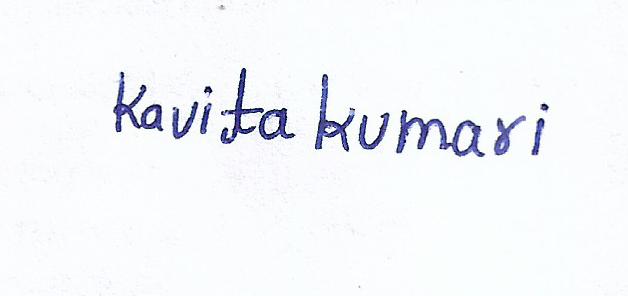 Kavita kumari